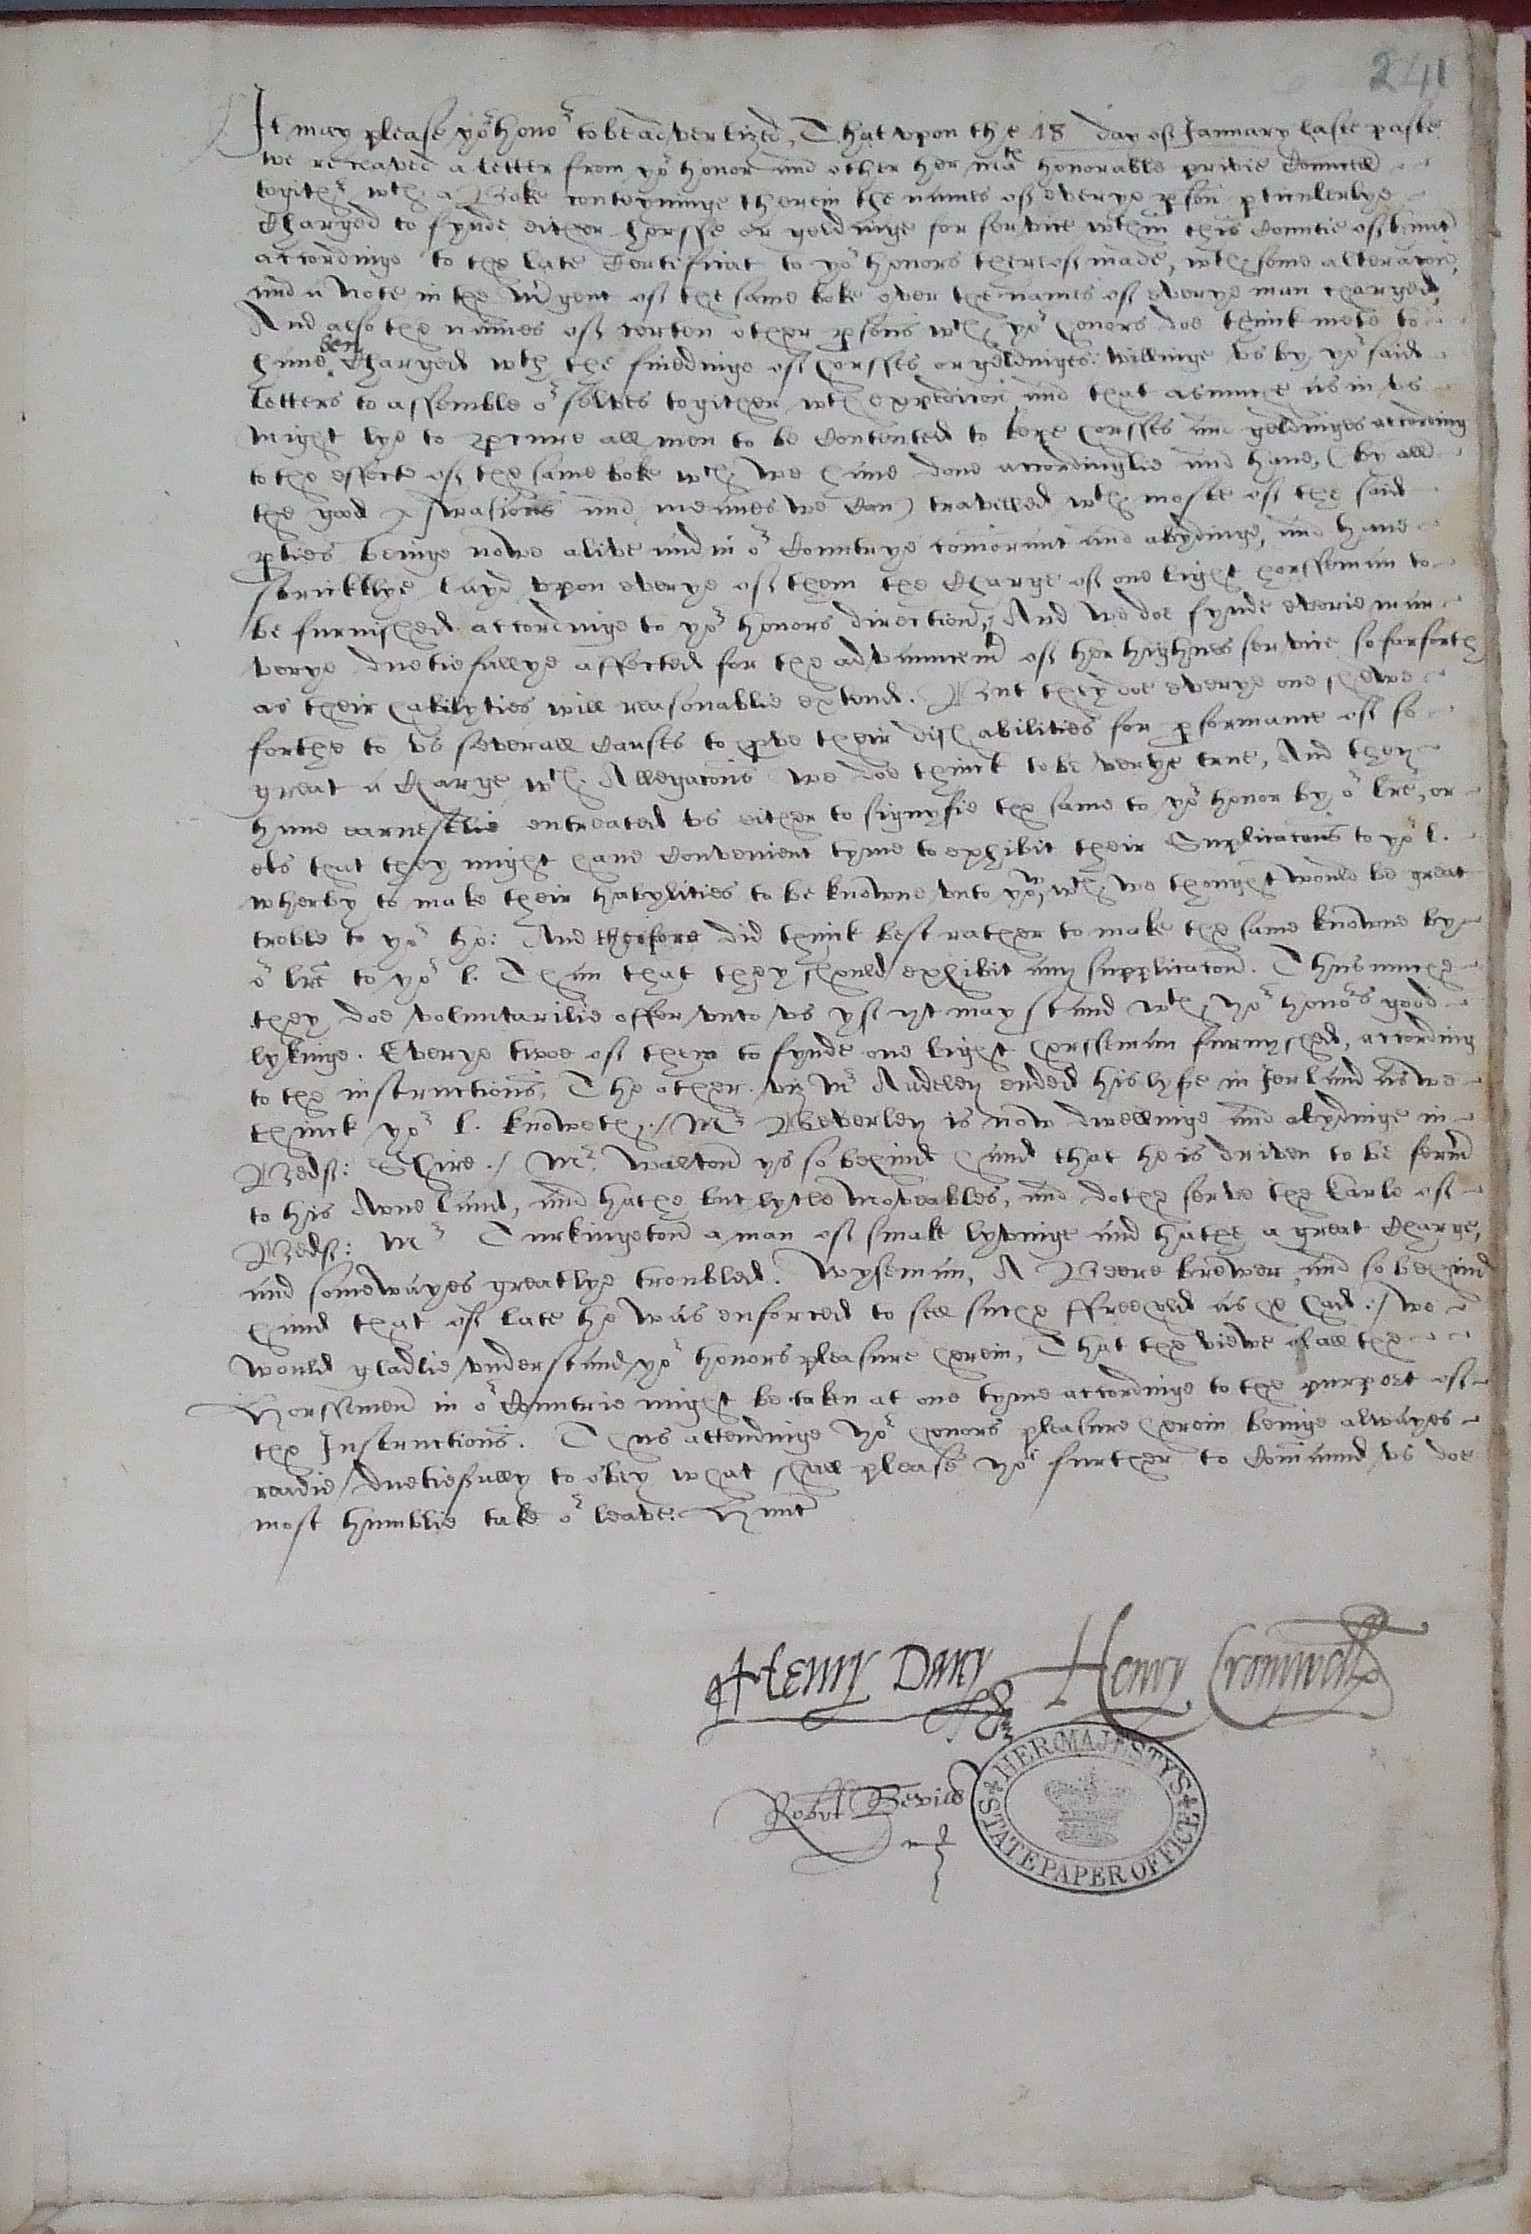 241
It may please yor honor to be advertized, That upon the 18 day of January laste paste
we receaved a letter from yor honor and other her mats honorable privie Councell
togither wth a Boke conteyninge therein the names of everye pson pticulerlye
Charged to fynde either horsse or geldinge for service wthin this Countie of Hunt
accordinge to the late Certificat to yor honors therof made, wth some alteracon,
and a Note in the mgent of the same boke over the names of everye man charged,
And also the names of certen other psons wch yor honors doe thinck mete to
have ben Charged wth the findinge of horsses or geldinges: willinge us by yor said
letters to assemble or selves togither wth expedicon and that asmuche as in us
might lye to pcure all men to be Contented to kepe horsses and geldinges according
to the effecte of the same boke wch we have done accordinglie and have, (by all
the good pswasions and meanes we Can) travelled wth moste of the said
pties beinge nowe alive and in or Countrye comorant and abydinge, and have
stricktlye layd upon everye of them the Charge of one light horsseman to
be furnished accordinge to yor honors direction, And we doe fynde everie man
verye duetiefullye affected for the advauncemt of her highnes service so farforth
as their habilyties will reasonablie extend. But they doe everye one shewe
forthe to us severall Causes to pve their dishabilities for pformance of so
great a Charge wch Allegacons we doe thinck to be verye true, And they
have earnestlie entreated us either to signyfie the same to yor honor by or lre, or
els that they might have Convenient tyme to exhibit their Supplicacons to yor l.
wherby to make their habylities to be knowne unto you, wch we thought would be great
troble to yor ho: And therfore did thinck best rather to make the same knowne by
or lre to yor l. Than that they should exhibit any supplicacon. Thus muche
they doe voluntarilie offer unto us yf yt may stand wth yor honors good
lykinge. Everye twoe of them to fynde one light horsseman furnyshed, according
to the instructions, The other viz Mr Audeley ended his lyfe in Ierland as we
thinck yor l. knoweth./ Mr Beverley is now dwellinge and abydinge in
Bedf: Shire./ Mr Walton ys so behind hand that he is driven to be fermr
to his owne land, and hathe but lytle moveables, and dothe serve the Earle of
Bedf: Mr Turkington a man of smale lyvinge and hathe a great Charge,
and somewayes greatlye troubled. Wyseman, A Beere brewer, and so behind
hand that of late he was enforced to sell suche ffreehold as he had:/ we
would gladlie understand yor honors pleasure herein, That the viewe of all the
Horssemen in or Countrie might be taken at one tyme accordinge to the purport of
the Instructions. Thus attendinge yor honors pleasure herein beinge alwayes
readie duetiefully to obey what shall please yow further to Comaund us doe
most humblie take or leave. Hunt
Henry Darcy Henry Cromwell
Robert Bevill
HER MAJESTY'S STATE PAPER OFFICE